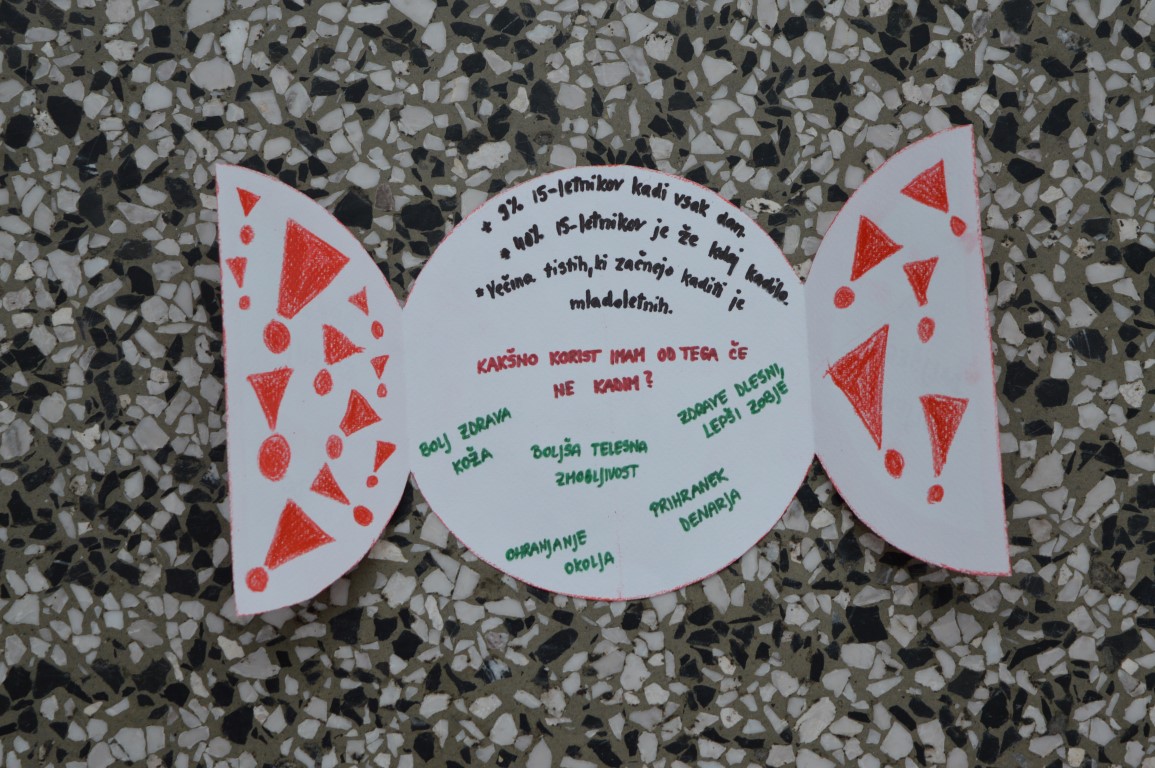 * 9% 15-letnikov kadi vsak dan.
* 40% 15-letnikov je že kdaj kadila.
* Večina tistih, ki začnejo kaditi je
mladoletnih.
KAKŠNO KORIST IMAM OD TEGA ČE
NE KADIM?
BOLJ ZDRAVA
KOŽA
BOLJŠA TELESNA
ZMOGLJIVOST
ZDRAVE DLESNI,
LEPŠI ZOBJE
OHRANJANJE
OKOLJA
PRIHRANEK
DENARJA